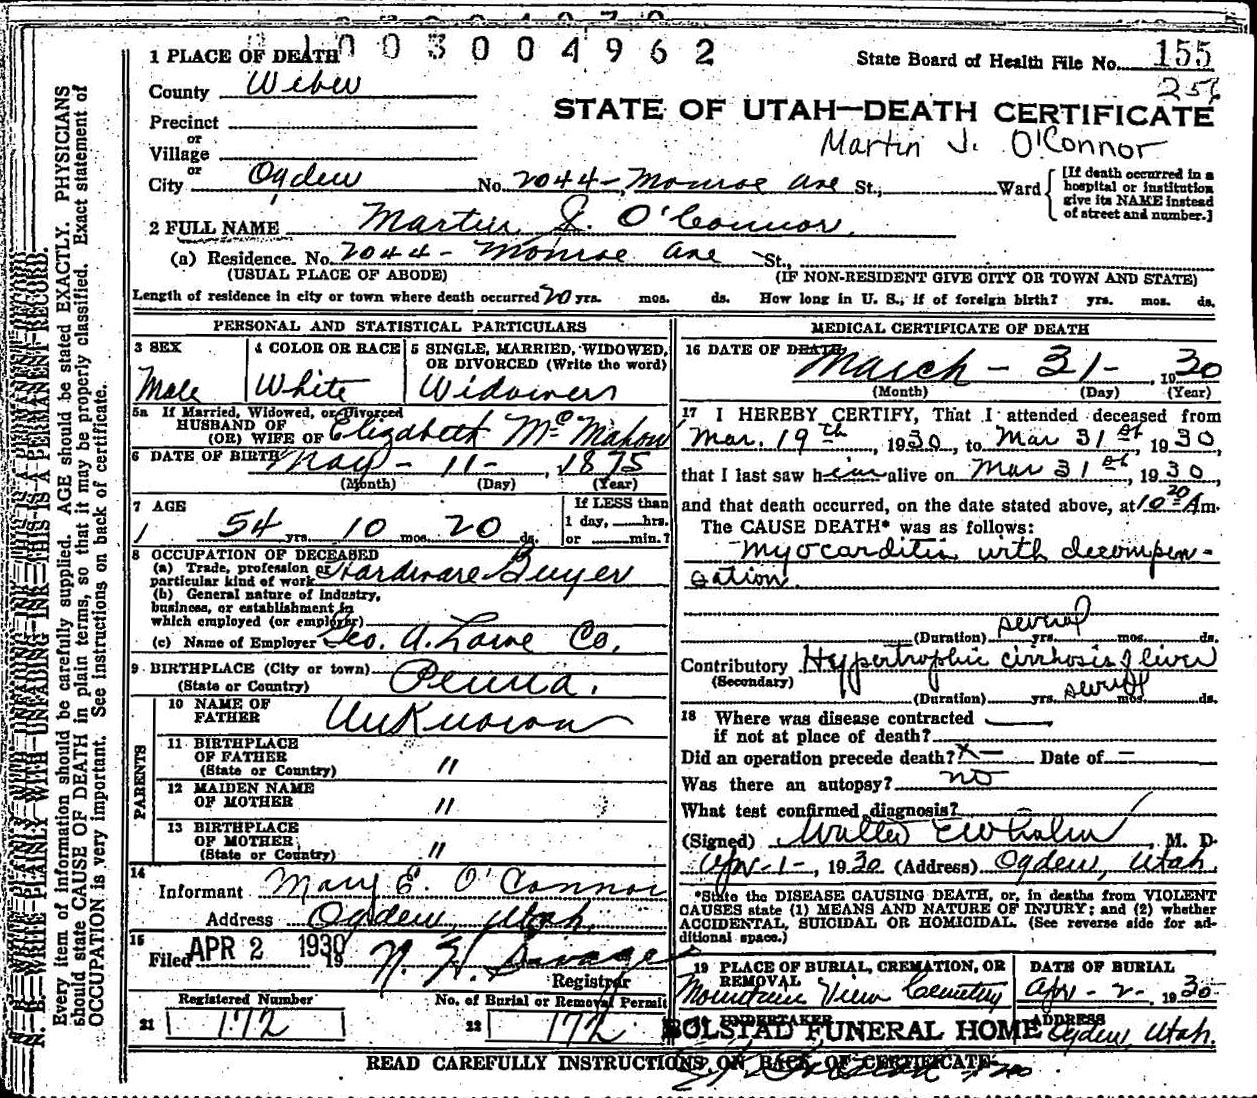 1003004962
1 PLACE OF DEATH
State Board of Health File No. 155
256
County Weber
STATE OF UTAH—DEATH CERTIFICATE
Precinct
or
Village
Martin J. O'Connor
or
City Ogden No. 2044 - Monroe Ave St., Ward
[If death occurred in a hospital or institution give its NAME instead of street and number.]
2 FULL NAME Martin J. O'Connor.
(a) Residence. No. 2044 - Monroe Ave St.,
(USUAL PLACE OF ABODE) (IF NON-RESIDENT GIVE CITY OR TOWN AND STATE)
Length of residence in city or town where death occurred 20 yrs. mos. ds. How long in U. S., if of foreign birth? yrs. mos. ds.
PERSONAL AND STATISTICAL PARTICULARS
3 SEX
Male
4 COLOR OR RACE
White
5 SINGLE, MARRIED, WIDOWED,
OR DIVORCED (Write the word)
Widower
5a If Married, Widowed, or Divorced
HUSBAND OF
(OR) WIFE OF Elizabeth McMahon
6 DATE OF BIRTH May - 11 - , 1875
(Month) (Day) (Year)
7 AGE
54 yrs. 10 mos. 20 ds.
If LESS than
1 day, hrs.
or min.?
8 OCCUPATION OF DECEASED
(a) Trade, profession or
particular kind of work Hardware Buyer
(b) General nature of industry,
business, or establishment in
which employed (or employer)
(c) Name of Employer Geo. A. Lowe Co.
9 BIRTHPLACE (City or town)
(State or Country) Penna.
PARENTS
10 NAME OF
FATHER Unknown
11 BIRTHPLACE
OF FATHER
(State or Country) "
12 MAIDEN NAME
OF MOTHER "
13 BIRTHPLACE
OF MOTHER
(State or Country) "
14
Informant Mary E. O'Connor
Address Ogden, Utah.
15
Filed APR 2 1930 19 N. H. Savage
Registrar
Registered Number No. of Burial or Removal Permit
21 172 22 172
MEDICAL CERTIFICATE OF DEATH
16 DATE OF DEATH March - 31 - , 1930
(Month) (Day) (Year)
17 I HEREBY CERTIFY, That I attended deceased from
Mar. 19th, 1930, to Mar 31st, 1930,
that I last saw him alive on Mar 31st, 1930,
and that death occurred, on the date stated above, at 10 20 A m.
The CAUSE DEATH* was as follows:
Myocarditis with decompen-
sation.
(Duration) several yrs. mos. ds.
Contributory Hypertrophic cirrhosis of liver
(Secondary)
(Duration) yrs. several mos. ds.
18 Where was disease contracted
if not at place of death?
Did an operation precede death? x — Date of —
Was there an autopsy? no
What test confirmed diagnosis?
(Signed) Walter E Whalen, M. D.
Apr - 1 - , 1930 (Address) Ogden, Utah.
*State the DISEASE CAUSING DEATH, or, in deaths from VIOLENT
CAUSES state (1) MEANS AND NATURE OF INJURY; and (2) whether
ACCIDENTAL, SUICIDAL OR HOMICIDAL. (See reverse side for ad-
ditional space.)
19 PLACE OF BURIAL, CREMATION, OR
REMOVAL
Mountain View Cemetery
DATE OF BURIAL
Apr - 2 - 1930
UNDERTAKER
BOLSTAD FUNERAL HOME
ADDRESS
Ogden, Utah.
READ CAREFULLY INSTRUCTIONS ON BACK OF CERTIFICATE
N. B.—WRITE PLAINLY WITH UNFADING INK—THIS IS A PERMANENT RECORD.
Every item of information should be carefully supplied. AGE should be stated EXACTLY. PHYSICIANS
should state CAUSE OF DEATH in plain terms, so that it may be properly classified. Exact statement of
OCCUPATION is very important. See instructions on back of certificate.